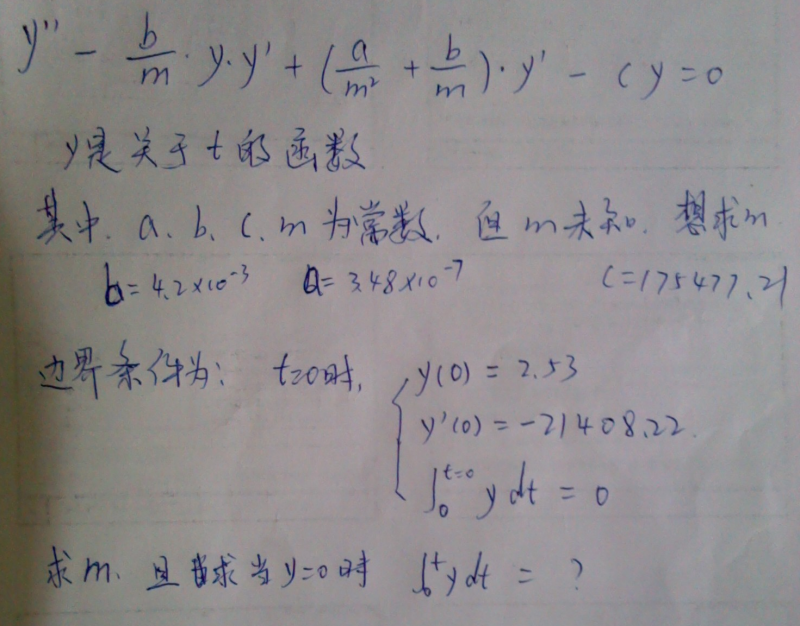 y'' - b/m · y · y' + (a/m² + b/m) · y' - cy = 0
y是关于t的函数
其中. a、b、c、m为常数. 但m未知. 想求m
b=4.2×10⁻³ a=3.48×10⁻⁷ c=175477.21
边界条件为: t=0时, { y(0) = 2.53
y'(0) = -21408.22.
∫₀^{t=0} y dt = 0
求m、且求当y=0时 ∫₀^t y dt = ?